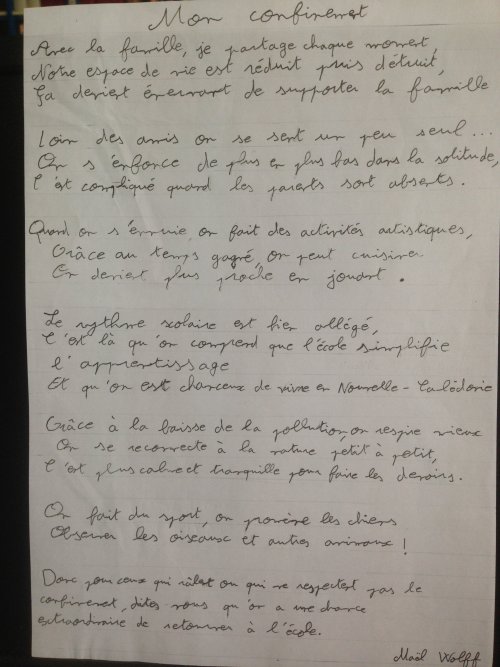 Mon confinement
Avec la famille, je partage chaque moment,
Notre espace de vie est réduit puis détruit,
Ça devient énervant de supporter la famille
Loin des amis on se sent un peu seul...
On s'enfonce de plus en plus bas dans la solitude,
C'est compliqué quand les parents sont absents.
Quand on s'ennuie, on fait des activités artistiques,
Grâce au temps gagné, on peut cuisiner
On devient plus proche en jouant.
Le rythme scolaire est bien allégé,
C'est là qu'on comprend que l'école simplifie
l'apprentissage
Et qu'on est chanceux de vivre en Nouvelle-Calédonie
Grâce à la baisse de la pollution, on respire mieux
On se reconnecte à la nature petit à petit,
C'est plus calme et tranquille pour faire les devoirs.
On fait du sport, on promène les chiens
Observer les oiseaux et autres animaux !
Donc pour ceux qui râlent ou qui ne respectent pas le
confinement, dites-vous qu'on a une chance
extraordinaire de retourner à l'école.
Maël Wolff